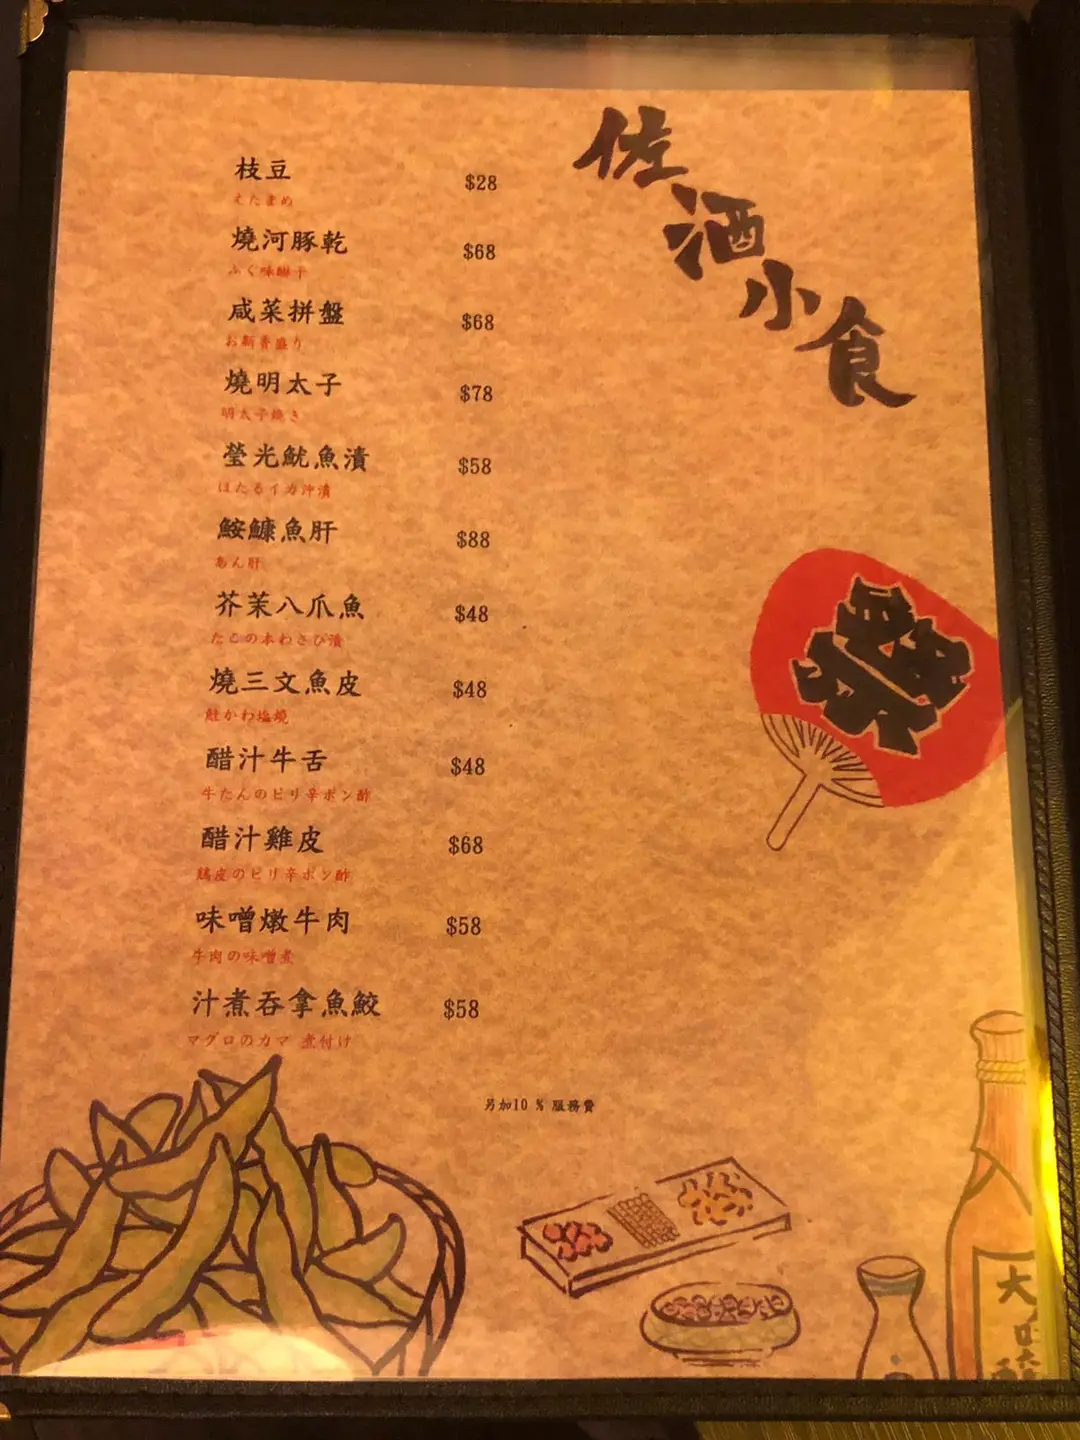 佐酒小食
枝豆 $28
えだまめ
燒河豚乾 $68
ふぐ味醂干
咸菜拼盤 $68
お新香盛り
燒明太子 $78
明太子焼き
瑩光魷魚漬 $58
ほたるイカ沖漬
鮟鱇魚肝 $88
あん肝
芥茉八爪魚 $48
たこの本わさび漬
燒三文魚皮 $48
鮭かわ塩焼
醋汁牛舌 $48
牛たんのピリ辛ポン酢
醋汁雞皮 $68
鶏皮のピリ辛ポン酢
味噌燉牛肉 $58
牛肉の味噌煮
汁煮吞拿魚鮫 $58
マグロのカマ 煮付け
另加10 % 服務費
祭
大